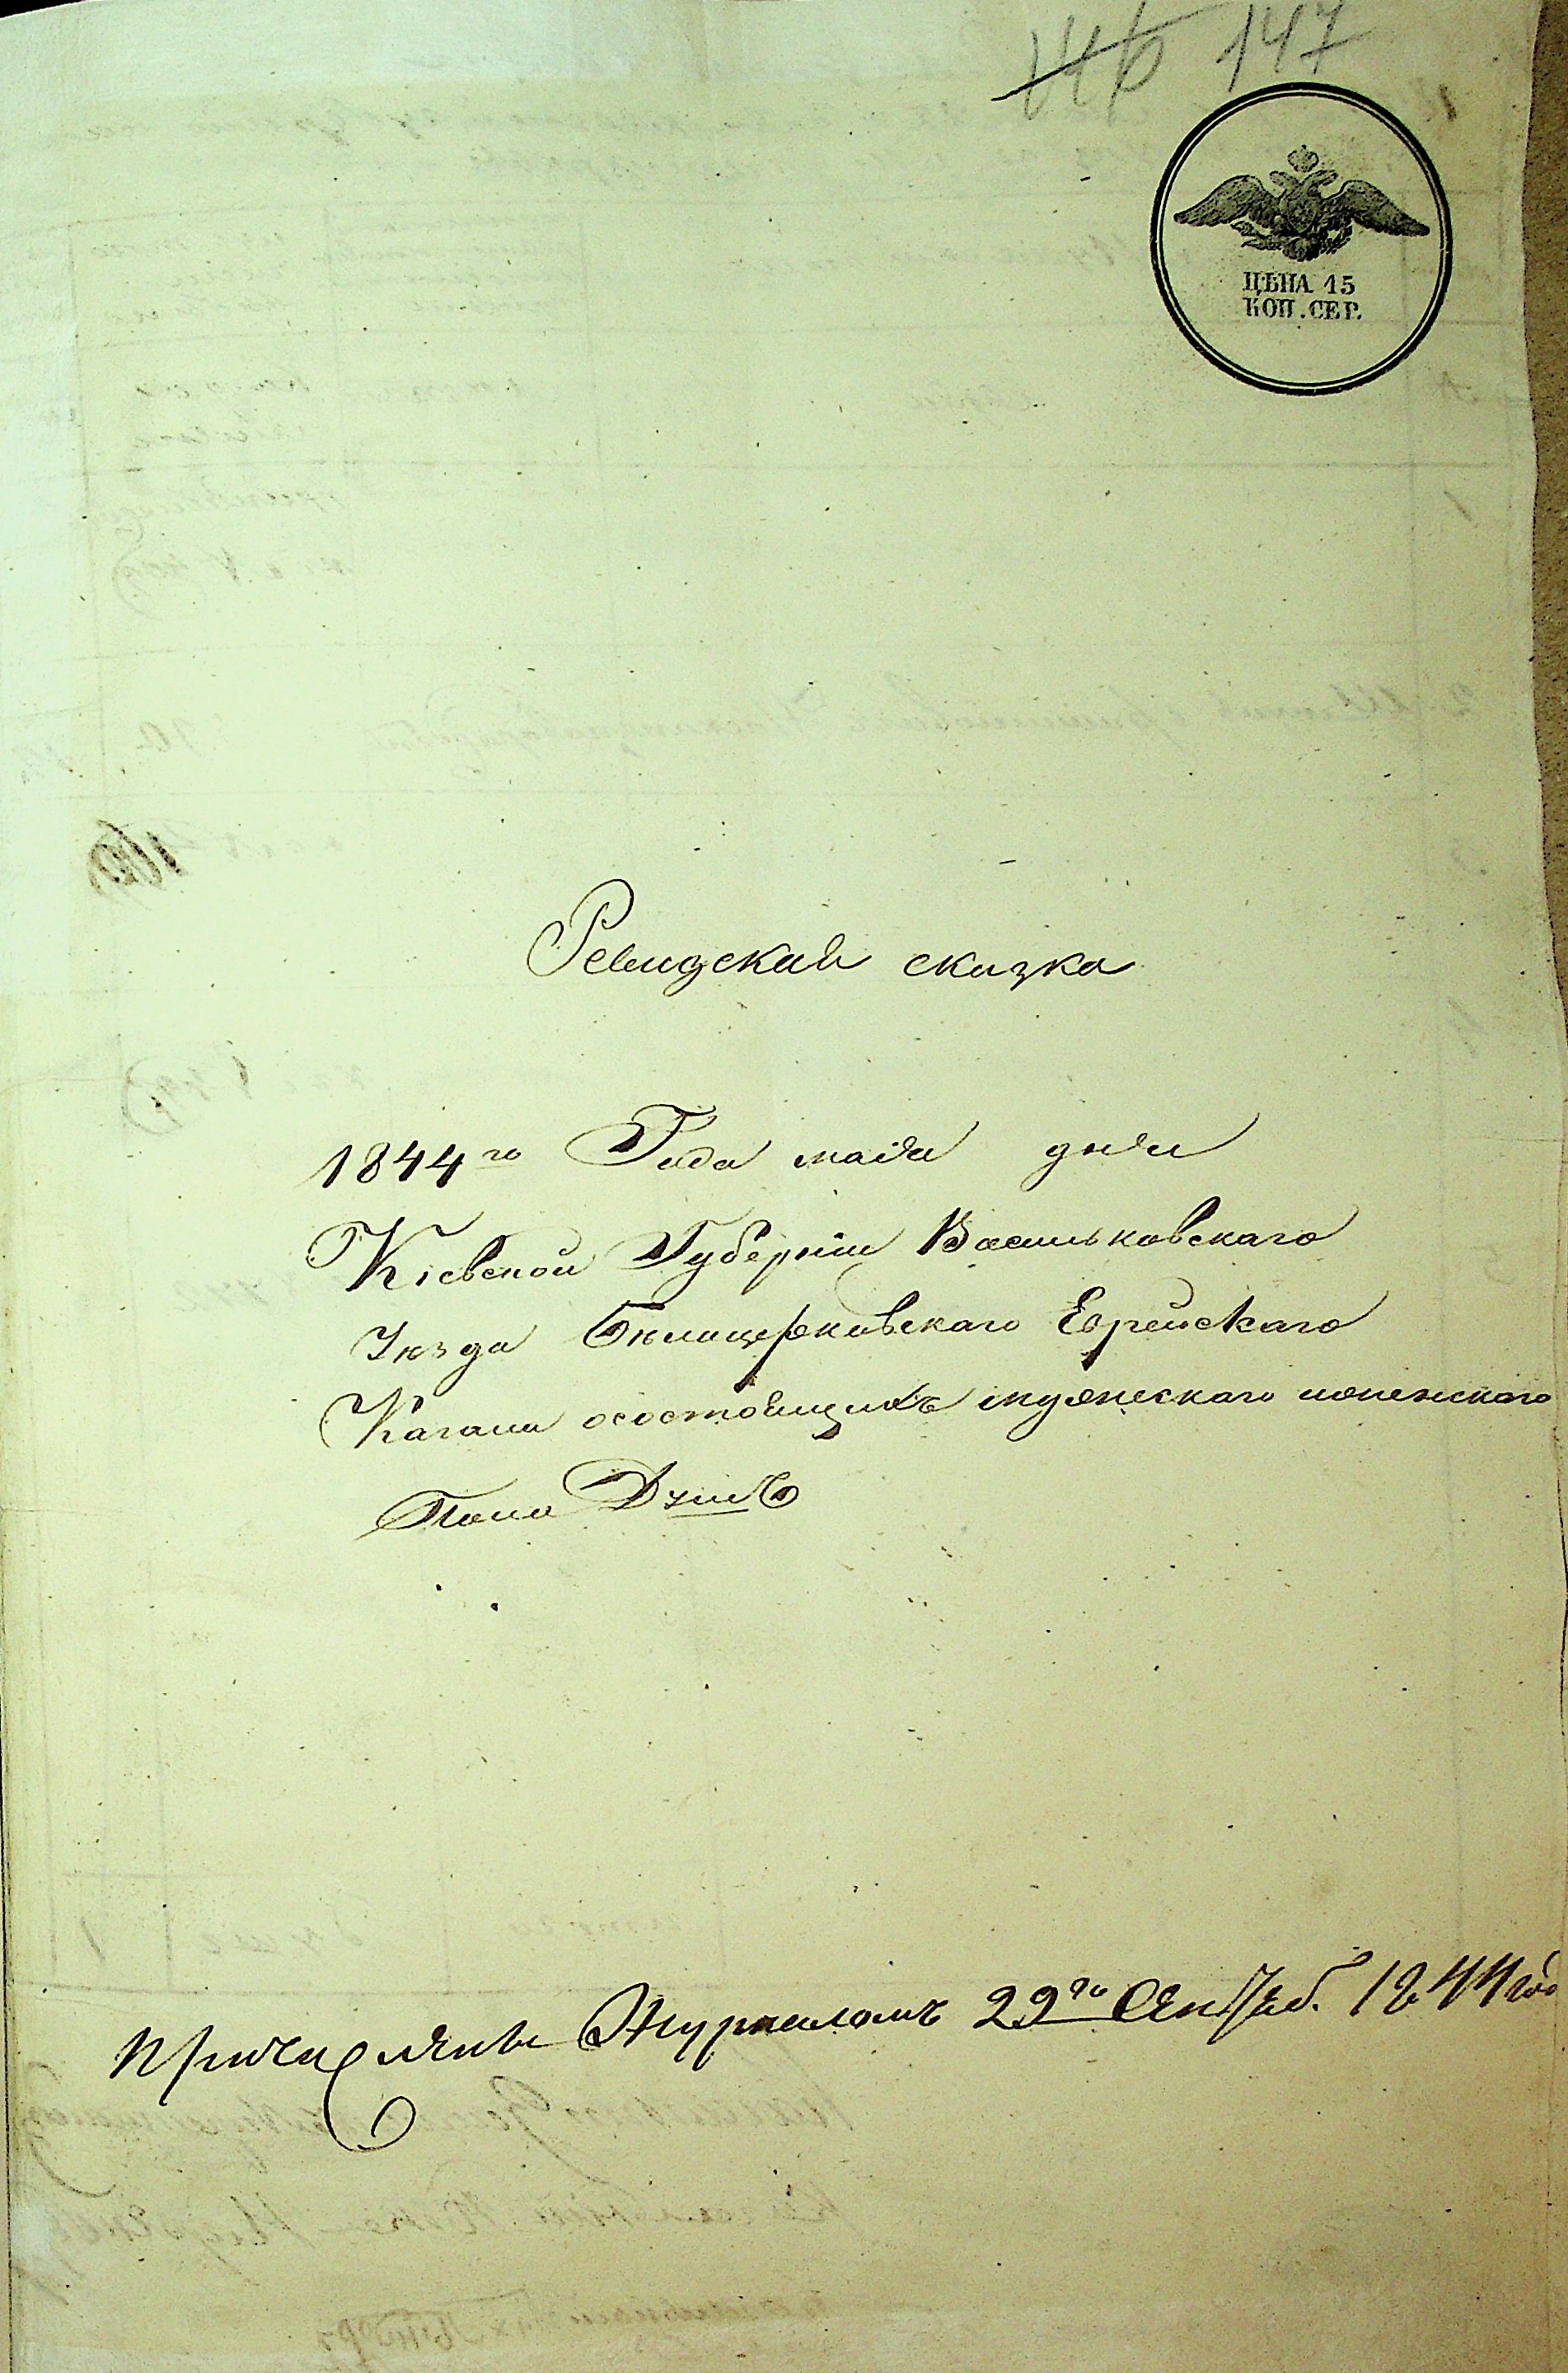 146 147
ЦѢНА 15
КОП. СЕР.
Ревизская сказка
1844го Года маія дня
Кіевской Губерніи Васильковскаго
Уѣзда Бѣлоцерковскаго Еврейскаго
Кагала осостоящихъ мужескаго иженскаго
Пола Душъ
Причислены Журналомъ 29го Сентяб. 1844 го